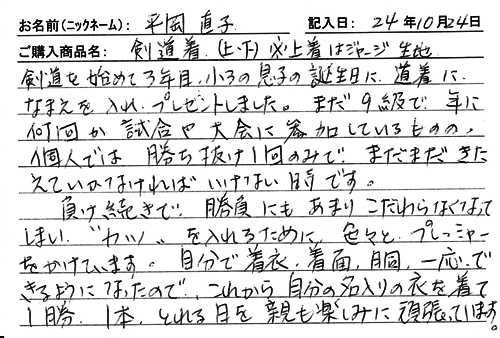 お名前(ニックネーム): 平岡 直子 記入日: 24年10月24日
ご購入商品名: 剣道着(上・下)※上着はジャージ生地
剣道を始めて3年目、小3の息子の誕生日に、道着に
なまえを入れ、プレゼントしました。まだ9級で、年に
何回か試合や大会に参加しているものの、
個人では勝ち抜け1回のみで、まだまだきた
えていかなければいけない時です。
負け続きで、勝負にもあまりこだわらなくなって
しまい、"カツ"を入れるために、色々と、プレッシャー
をかけています。自分で着衣、着面、胴、一応、で
きるようになったので、これから自分の名入りの衣を着て
1勝、1本、とれる日を親も楽しみに頑張っています。